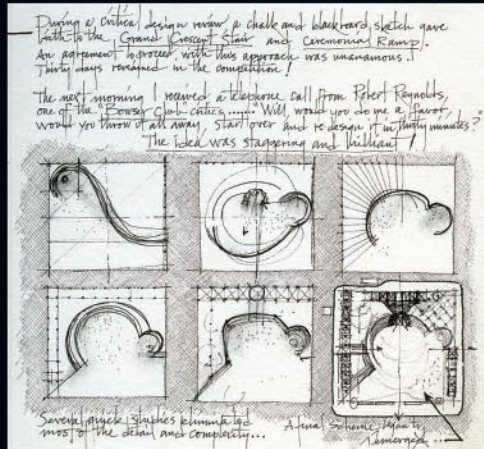 During a critical design review a chalk and blackboard sketch gave
birth to the Grand Crescent Stair and Ceremonial Ramp.
An agreement to proceed with this approach was unanamous!
Thirty days remained in the competition!
The next morning I received a telephone call from Robert Reynolds,
one of the "Bowser Club" critics ...... "Will, would you do me a favor,
would you throw it all away, start over and re-design it in thirty minutes?"
The idea was staggering and brilliant!
Several quick studies eliminated
most of the detail and complexity...
A final scheme began to
emerged ...